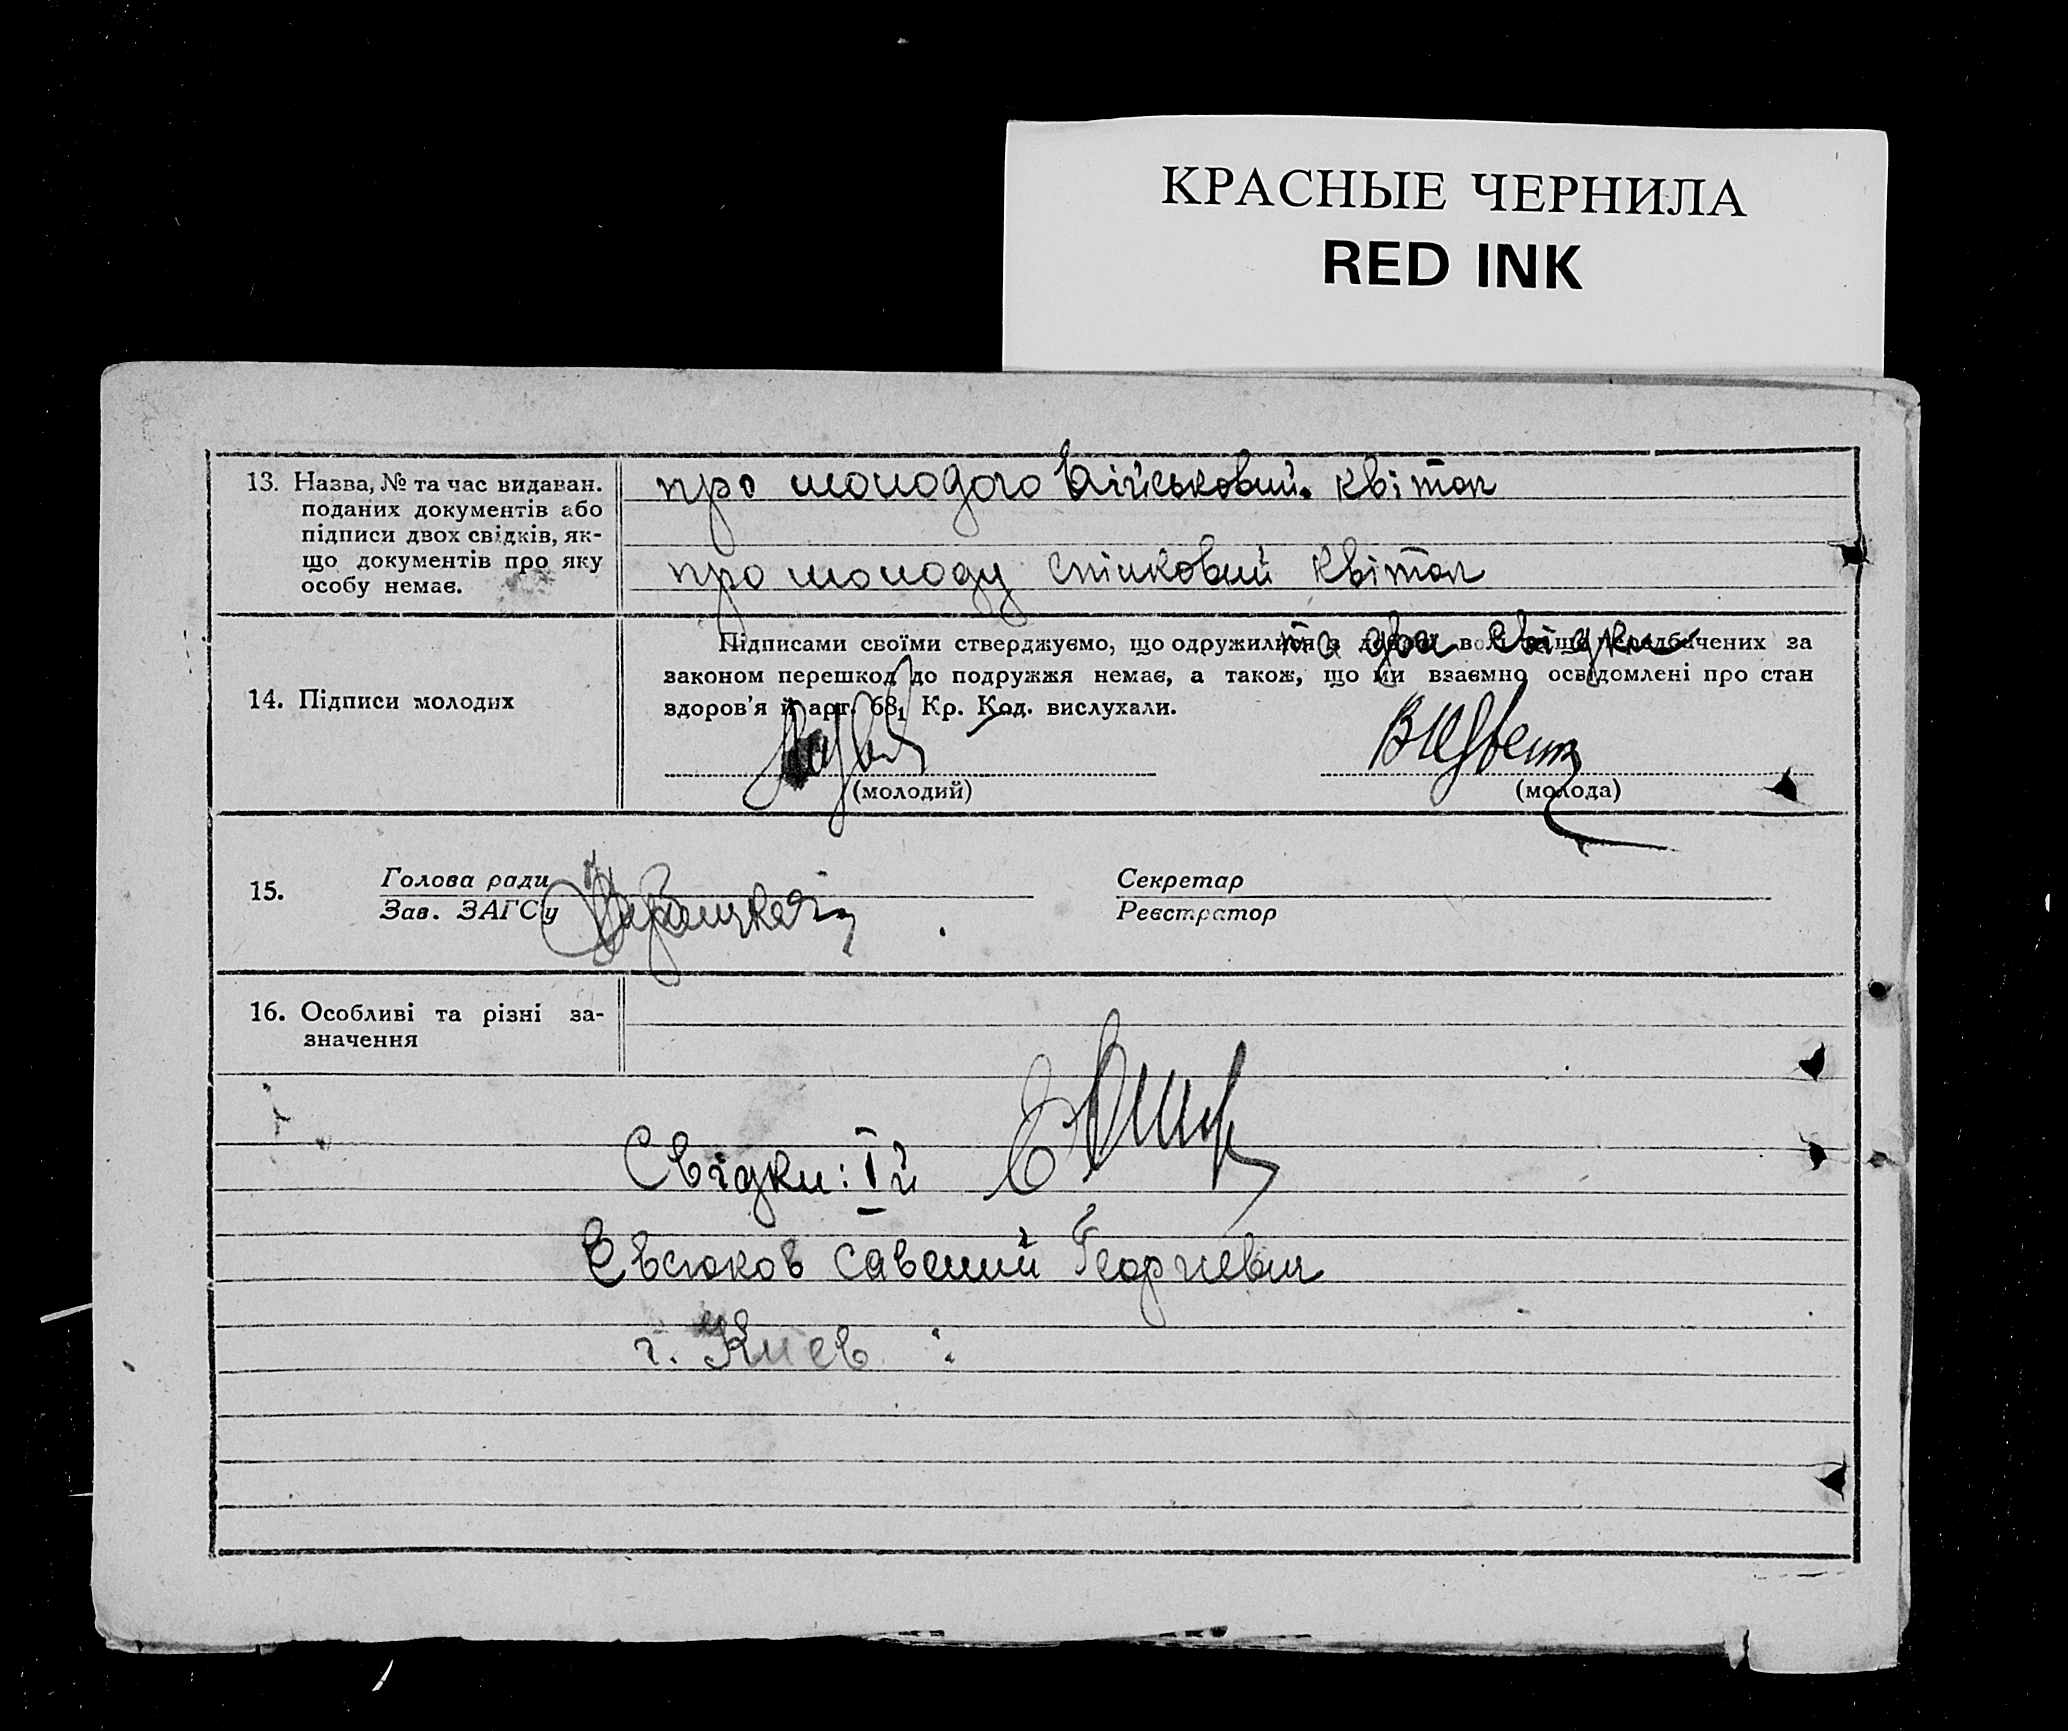 КРАСНЫЕ ЧЕРНИЛА
RED INK
13. Назва, № та час видаван.
поданих документів або
підписи двох свідків, як-
що документів про яку
особу немає.
про молодого Військовий. квіток
про молоду спілковий квіток
та два свідки
14. Підписи молодих
Підписами своїми стверджуємо, що одружилися з доброї волі та що передбачених за
законом перешкод до подружжя немає, а також, що ми взаємно освідомлені про стан
здоров'я й арт. 68₁ Кр. Код. вислухали.
(молодий)
(молода)
15.
Голова ради
Зав. ЗАГС'у
Секретар
Реєстратор
16. Особливі та різні за-
значення
Свідки: Iй
Євсюков Савелий Георгиевич
г. Киев